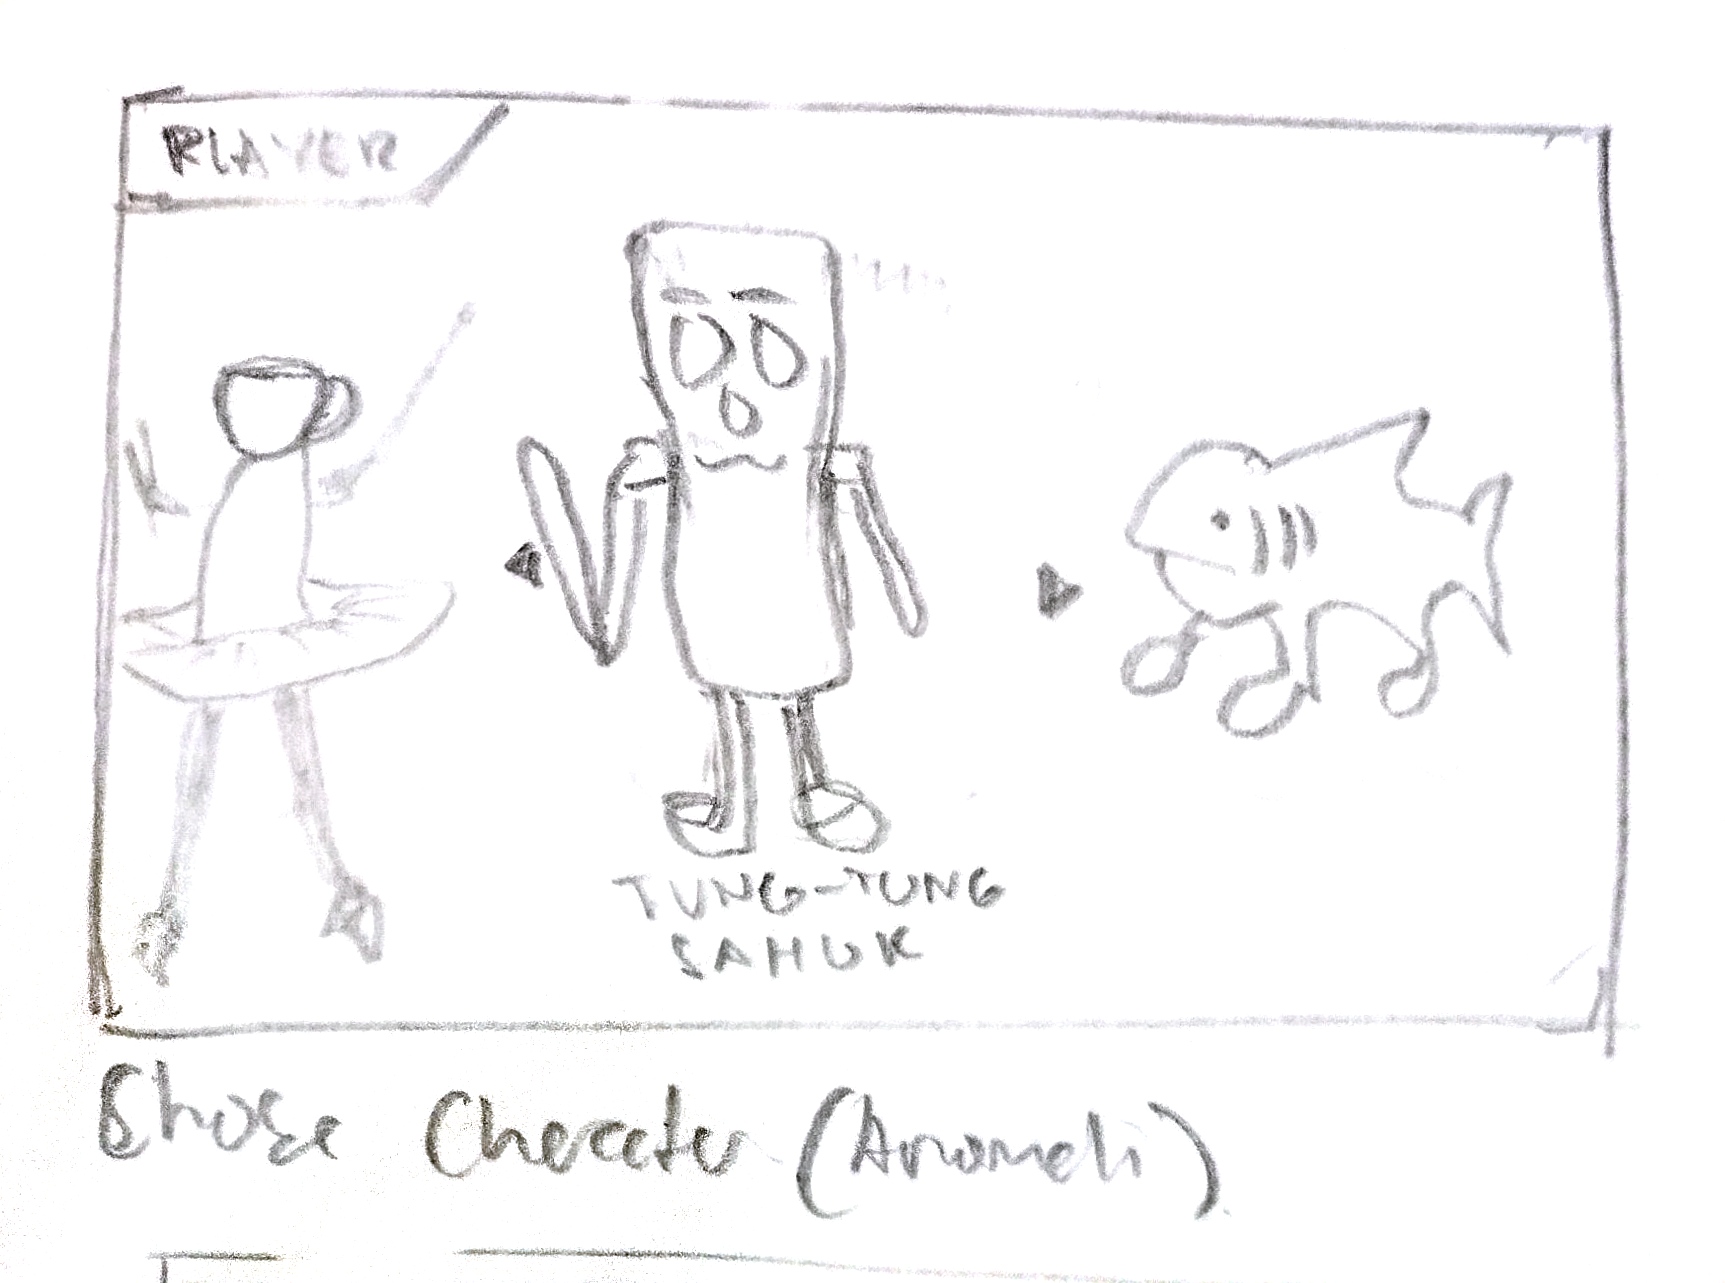 PLAYER
TUNG-TUNG
SAHUR
Chose Character (Anomali)